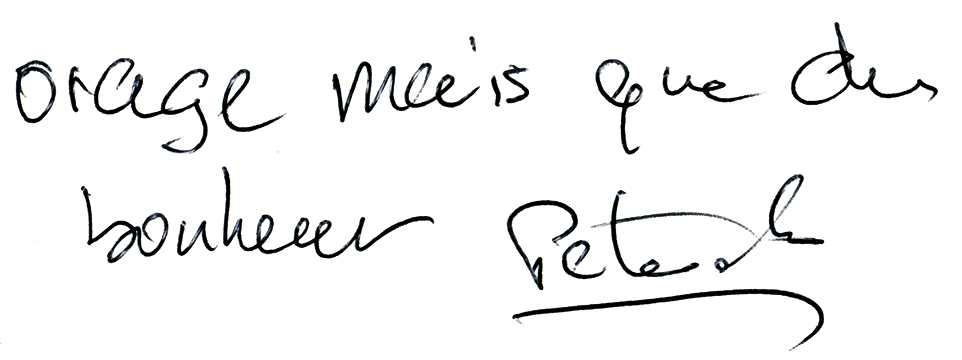 orage mais que du
bonheur